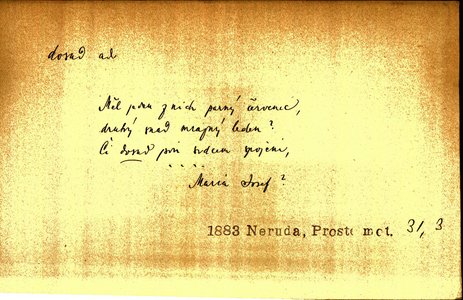 dosud ad
Měl jeden z nich parný červenec,
druhý snad mrazný leden?
Či dosud jsou srdcem spojeni,
Maria Josef?
1883 Neruda, Prosté mot. 31, 3